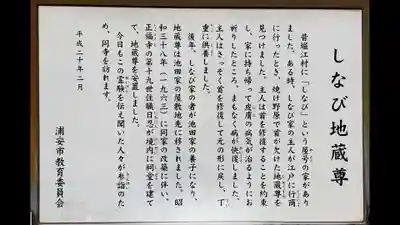 しなび地蔵尊
昔堀江村に「しなび」という屋号の家があり
ました。ある時、しなび家の主人が江戸に行商
に行ったとき、焼け野原で首が欠けた地蔵尊を
見つけました。主人は首を修復することを約束
し、家に持ち帰って皮膚の病気が治るようにお
祈りしたところ、まもなく病が快復しました。
主人はさっそく首を修復して元の形に戻し、丁
重に供養しました。
後年、しなび家の者が池田家の養子になり、
地蔵尊は池田家の屋敷地先に移されました。昭
和三十八年（一九六三）に同家の改築に伴い、
正福寺の第十九世住職日忍が境内に祠堂を建て
て、地蔵尊を安置しました。
今日もこの霊験を伝え聞いた人々が参詣のた
め、同寺を訪れます。
平成二十年二月
浦安市教育委員会